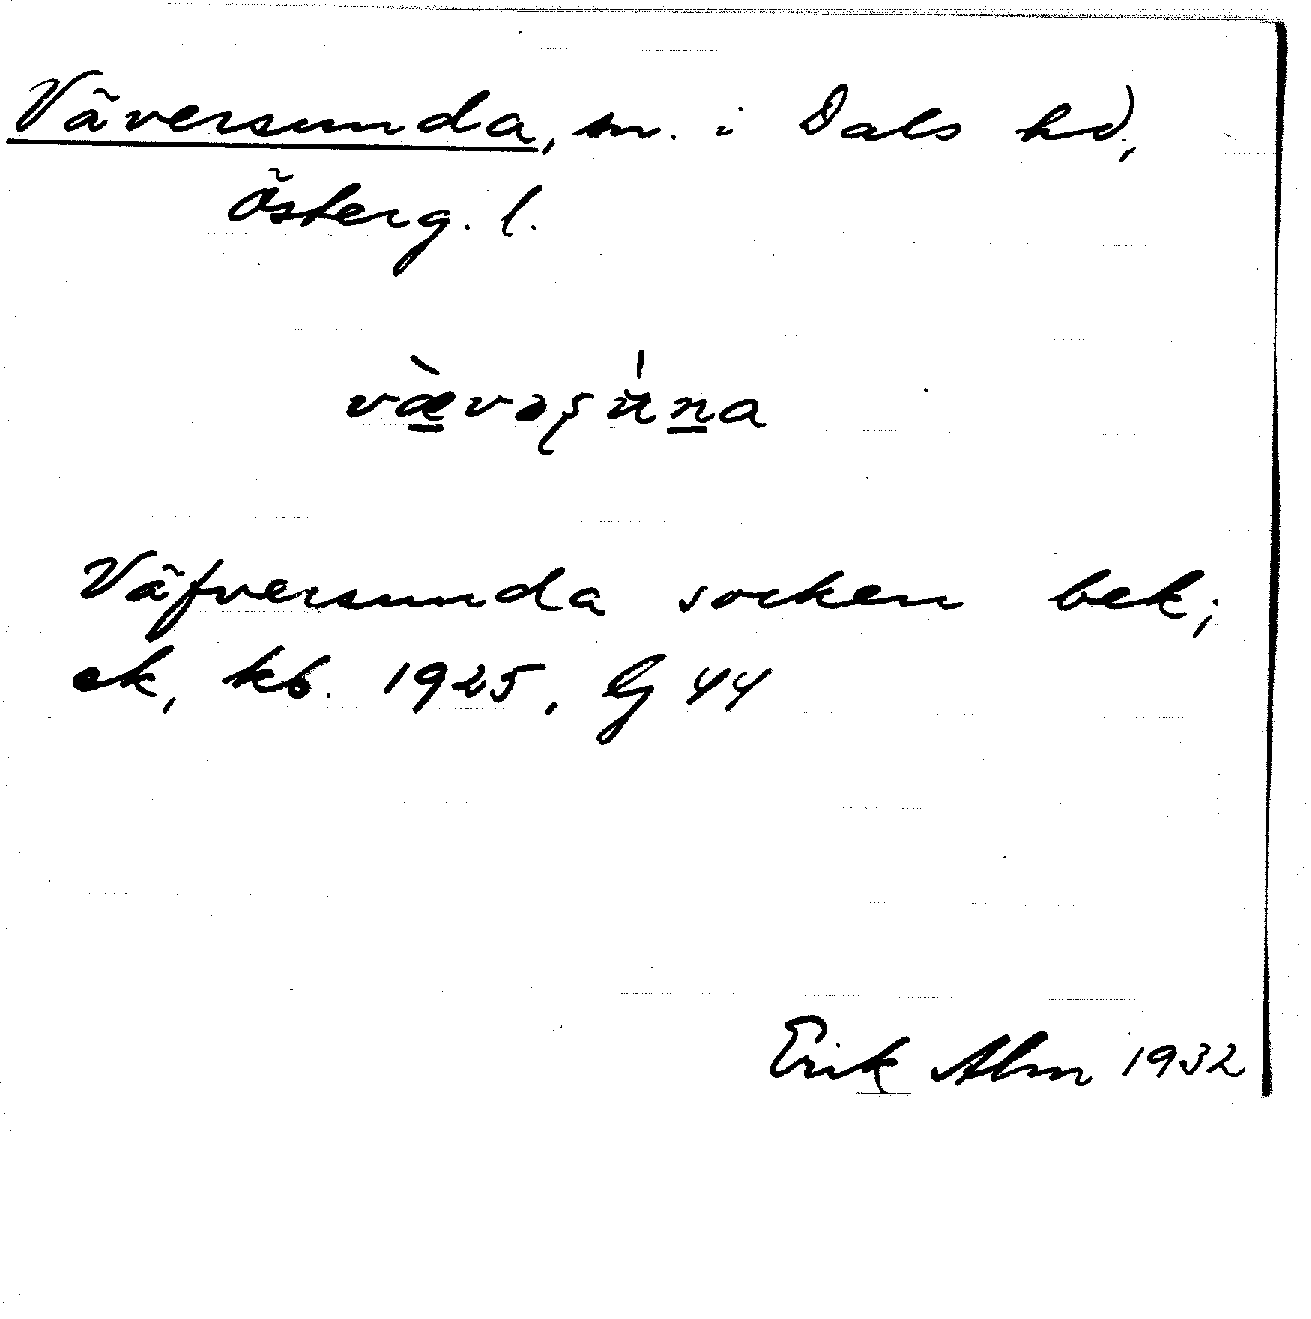 Väversunda, sn. i Dals hd,
Österg. l.
vævəʂu̇na
Väfversunda socken bek;
ek, kb. 1925, G 44
Erik Alm 1932